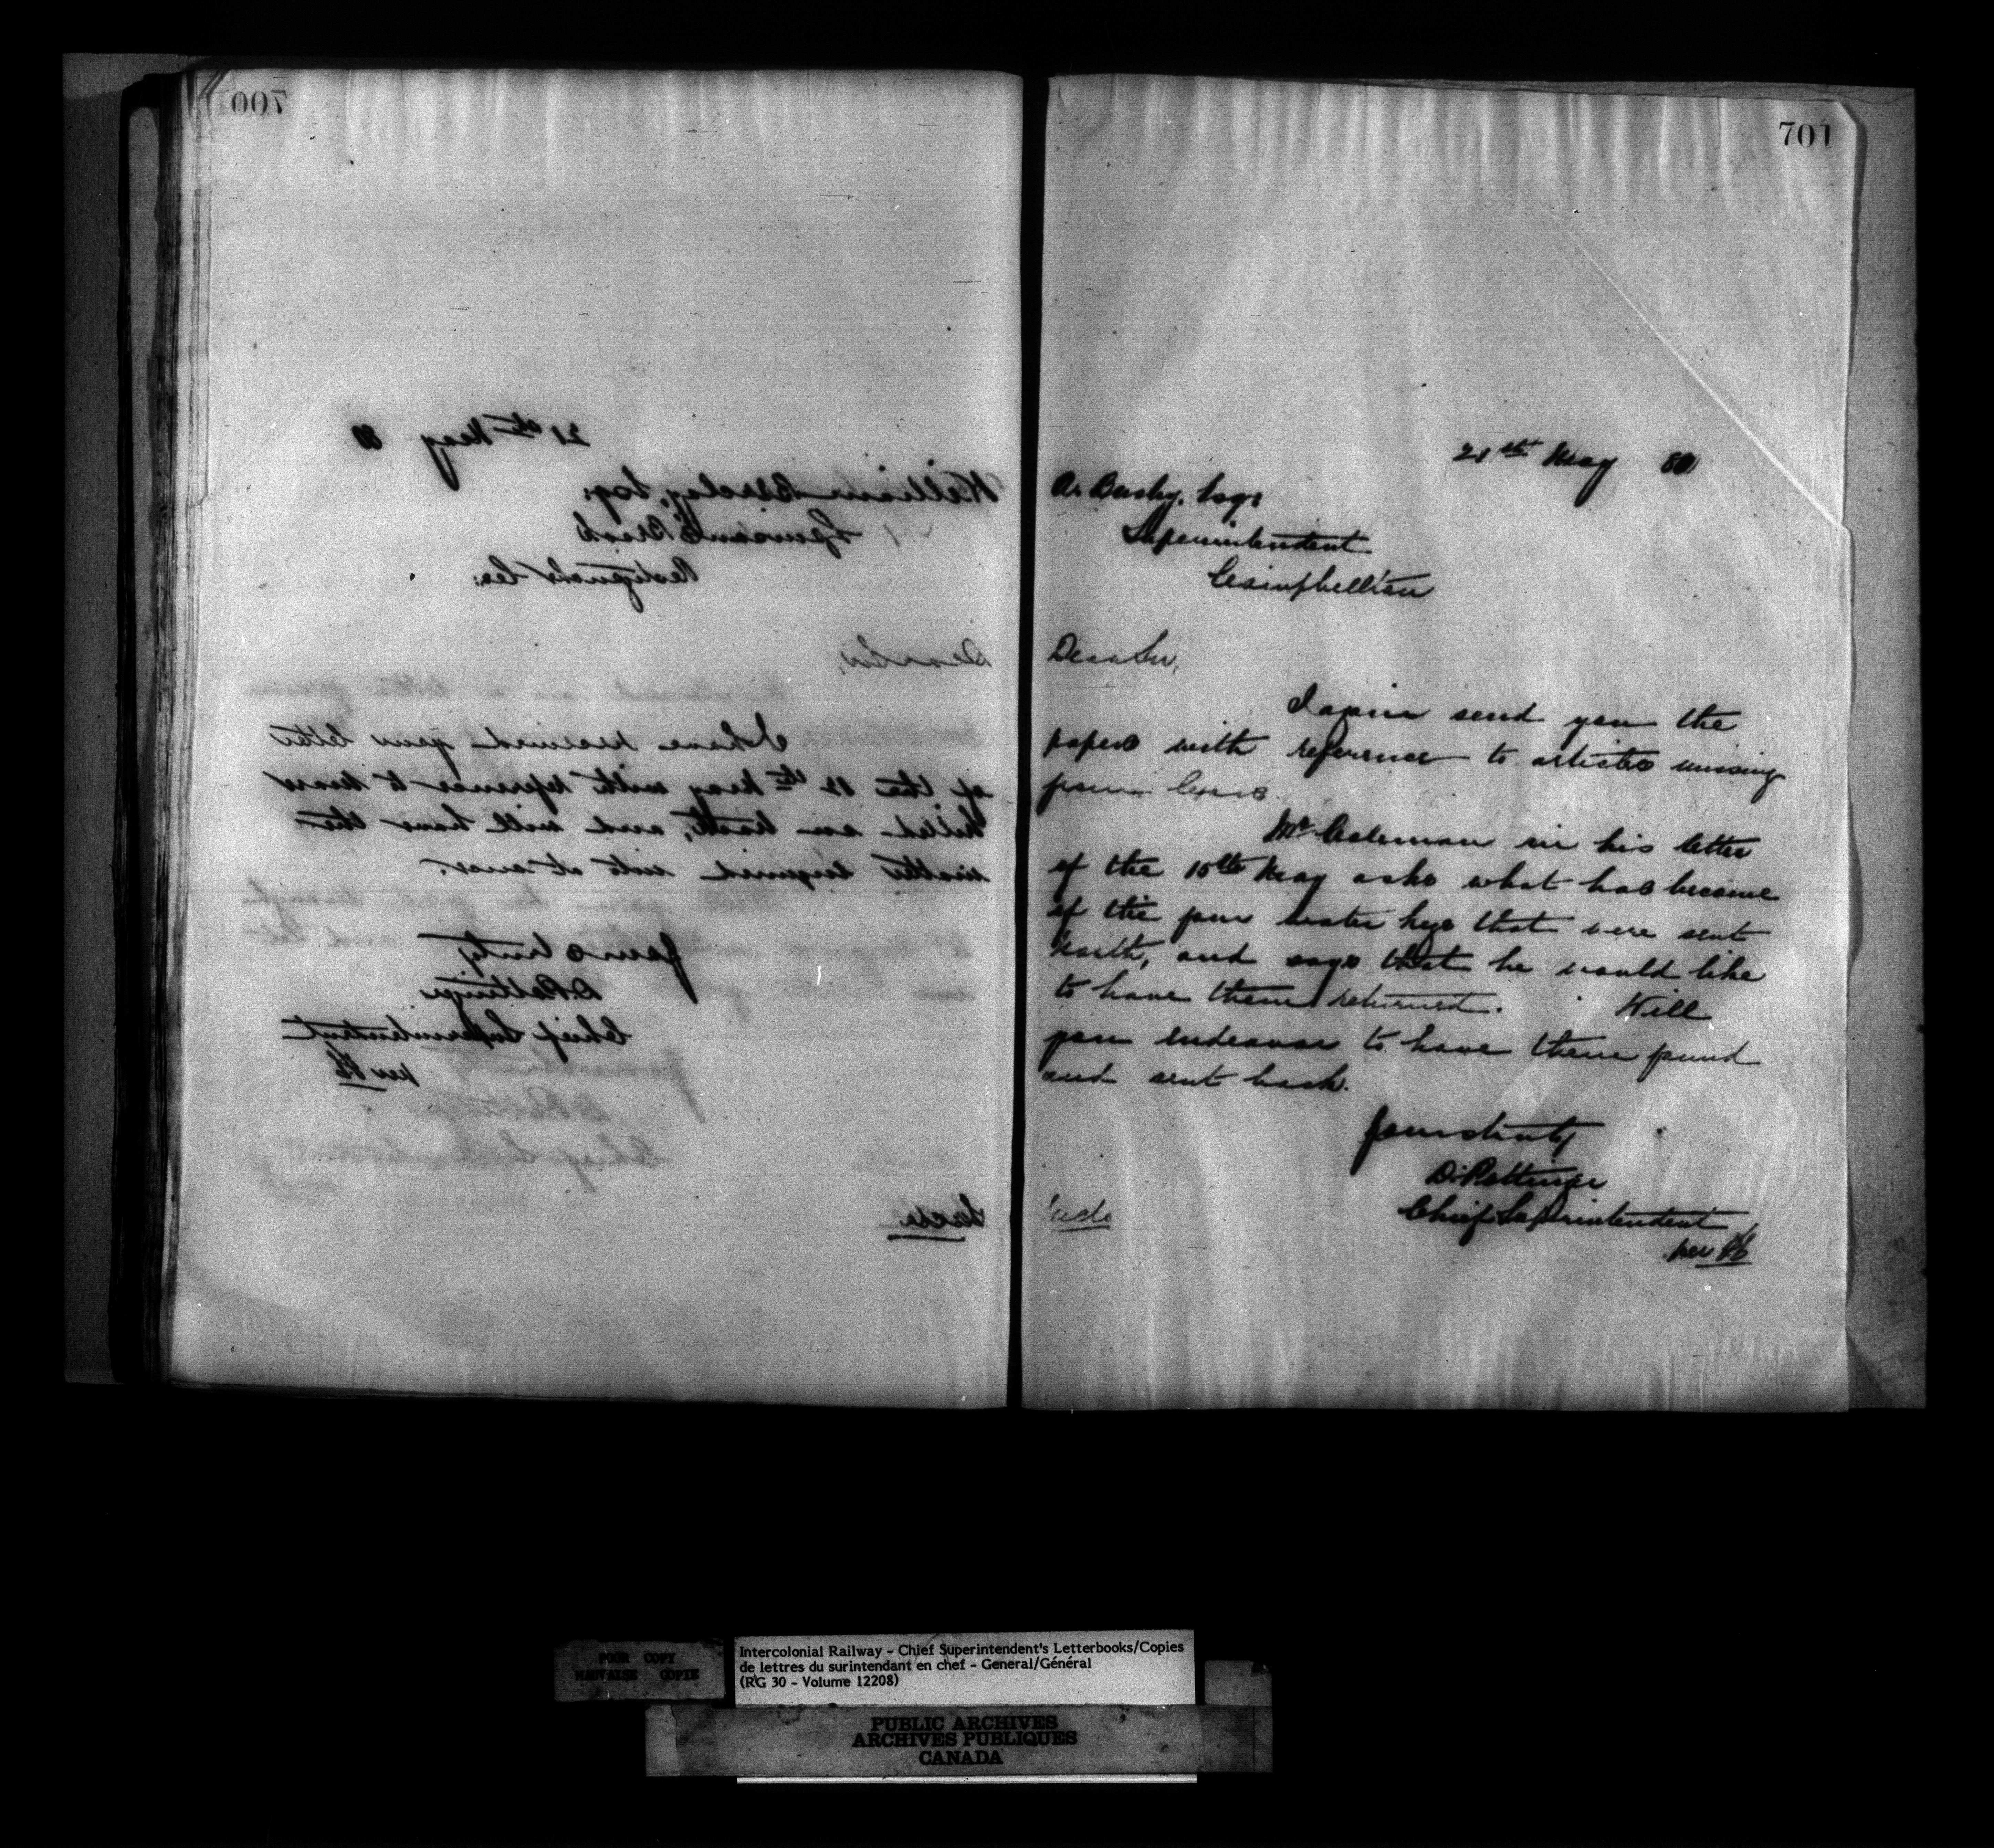 700
21st May 80
William Barclay, Esq:
Brook
Restigouche Co:
Dear Sir,
I have received your letter
of the 12th May with reference to
killed on track, and will have the
matter enquired into at once.
Yours truly
D. Pottinger
Chief Superintendent
per
701
21st May 80
A. Busby, Esqr
Superintendent
Campbellton
Dear Sir,
I again send you the
papers with reference to articles missing
from Cars.
Mr Coleman in his letter
of the 15th May asks what has become
of the four water kegs that were sent
North, and says that he would like
to have them returned. Will
you endeavor to have them found
and sent back.
Yours truly
D. Pottinger
Chief Superintendent
per
POOR COPY
MAUVAISE COPIE
Intercolonial Railway - Chief Superintendent's Letterbooks/Copies
de lettres du surintendant en chef - General/Général
(RG 30 - Volume 12208)
PUBLIC ARCHIVES
ARCHIVES PUBLIQUES
CANADA